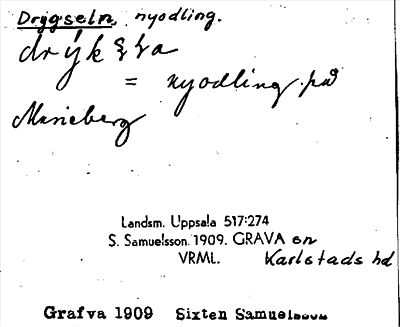 Drygseln, nyodling.
= nyodling på
Marieberg
Landsm. Uppsala 517:274
S. Samuelsson. 1909. GRAVA en
VRML. Karlstads hd
Grafva 1909 Sixten Samuelsson